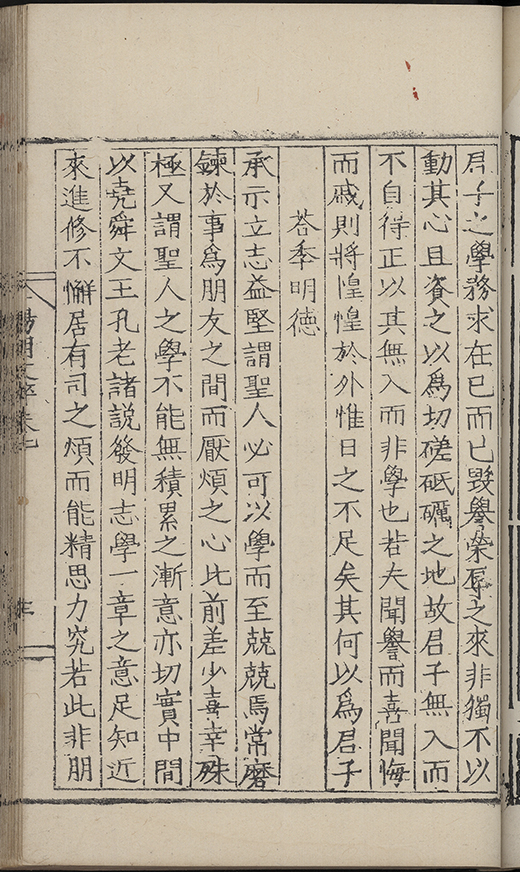 君子之學務求在已而已毀譽榮辱之來非獨不以
動其心且資之以爲切磋砥礪之地故君子無入而
不自得正以其無入而非學也若夫聞譽而喜聞悔
而戚則將惶惶於外惟日之不足矣其何以爲君子
荅季明徳
承示立志益堅謂聖人必可以學而至兢兢焉常磨
鍊於事爲朋友之間而厭煩之心比前差少喜幸殊
極又謂聖人之學不能無積累之漸意亦切實中間
以堯舜文王孔老諸説發明志學一章之意足知近
來進修不懈居有司之煩而能精思力究若此非朋
陽明文粹卷七